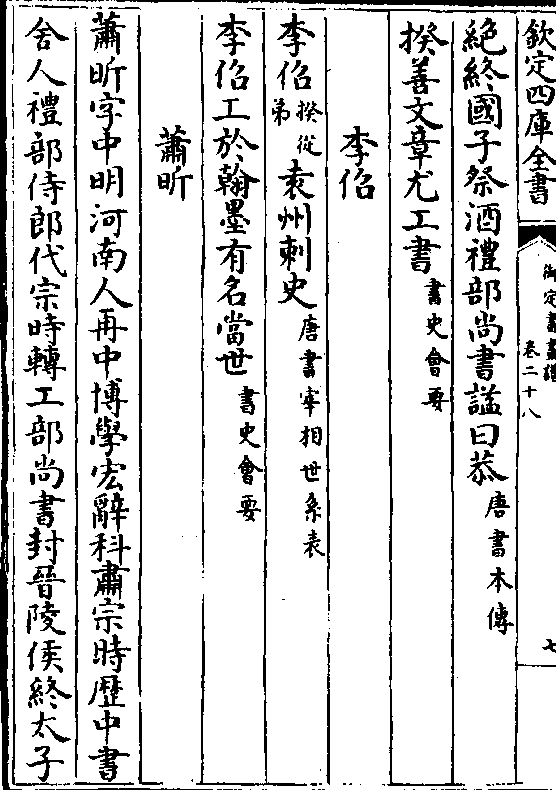 欽定四庫全書
御定書畫譜
卷二十八
七
絶終國子祭酒禮部尚書謚曰恭唐書本傳
揆善文章尤工書書史會要
李佋
李佋揆從弟袁州刺史唐書宰相世系表
李佋工於翰墨有名當世書史會要
蕭昕
蕭昕字中明河南人再中博學宏辭科肅宗時歴中書
舍人禮部侍郎代宗時轉工部尚書封晉陵侯終太子